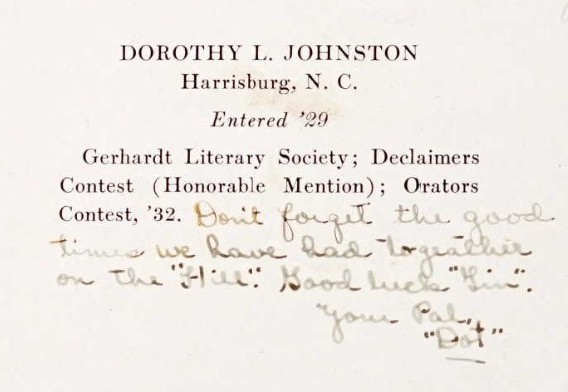 DOROTHY L. JOHNSTON
Harrisburg, N. C.
Entered '29
Gerhardt Literary Society; Declaimers
Contest (Honorable Mention); Orators
Contest, '32. Don't forget the good
times we have had togeather
on the "Hill". Good luck "Gin".
Your Pal,
"Dot"